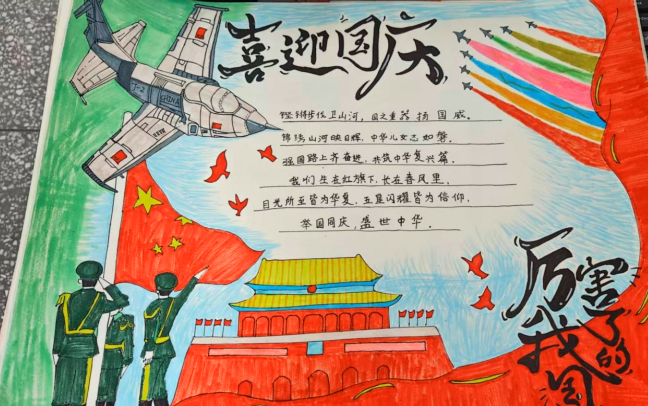 喜迎国庆
铿锵步伐卫山河，国之重器扬国威。
锦绣山河映日辉，中华儿女志如磐。
强国路上齐奋进，共筑中华复兴篇。
我们生在红旗下，长在春风里。
目光所至皆为华夏，五星闪耀皆为信仰，
举国同庆，盛世中华。
厉害了
我的国
CHINA